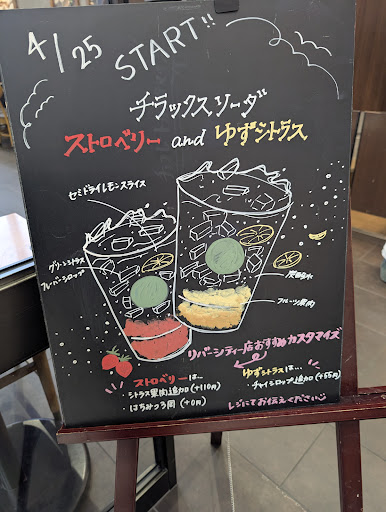 4/25 START!!
チラックスソーダ
ストロベリー and ゆずシトラス
セミドライレモンスライス
グリーンシトラス
フレーバーシロップ
炭酸水
フルーツ果肉
リバーシティー店おすすめカスタマイズ
ストロベリーは…
・シトラス果肉追加(+110円)
・はちみつ1周(+0円)
ゆずシトラスは…
・チャイシロップ追加(+55円)
レジにてお伝えください